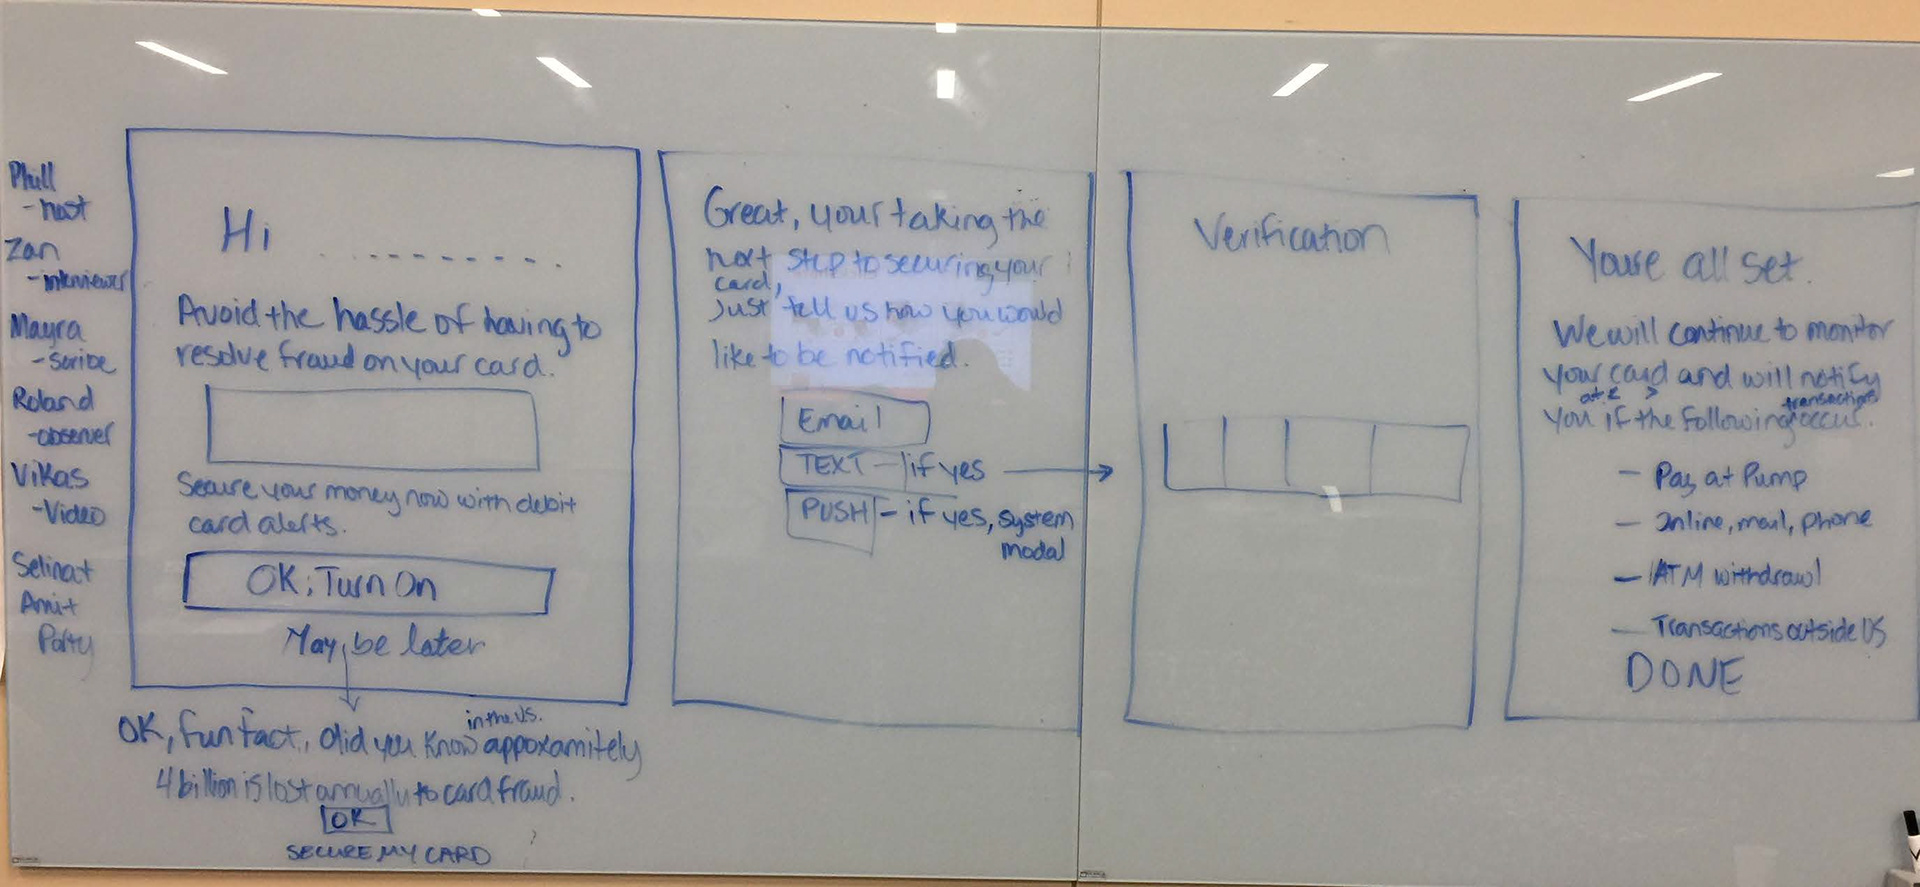 Phill
- host
Zan
- interviewer
Mayra
- scribe
Roland
- observer
Vikas
- Video
Selinat
Amit
Party
Hi ---------
Avoid the hassle of having to
resolve fraud on your card.
Secure your money now with debit
card alerts.
OK, Turn On
May be later
OK, Fun fact, did you know appoxamitely
in the US.
4 billion is lost annually to card fraud.
OK
SECURE MY CARD
Great, your taking the
next step to securing your
card,
Just tell us how you would
like to be notified.
Email
TEXT - if yes
PUSH - if yes, system
modal
Verification
Youre all set.
We will continue to monitor
your card and will notify
you if the following occus.
transactions
- Pay at Pump
- Online, mail, phone
- ATM withdrawl
- Transactions outside US
DONE